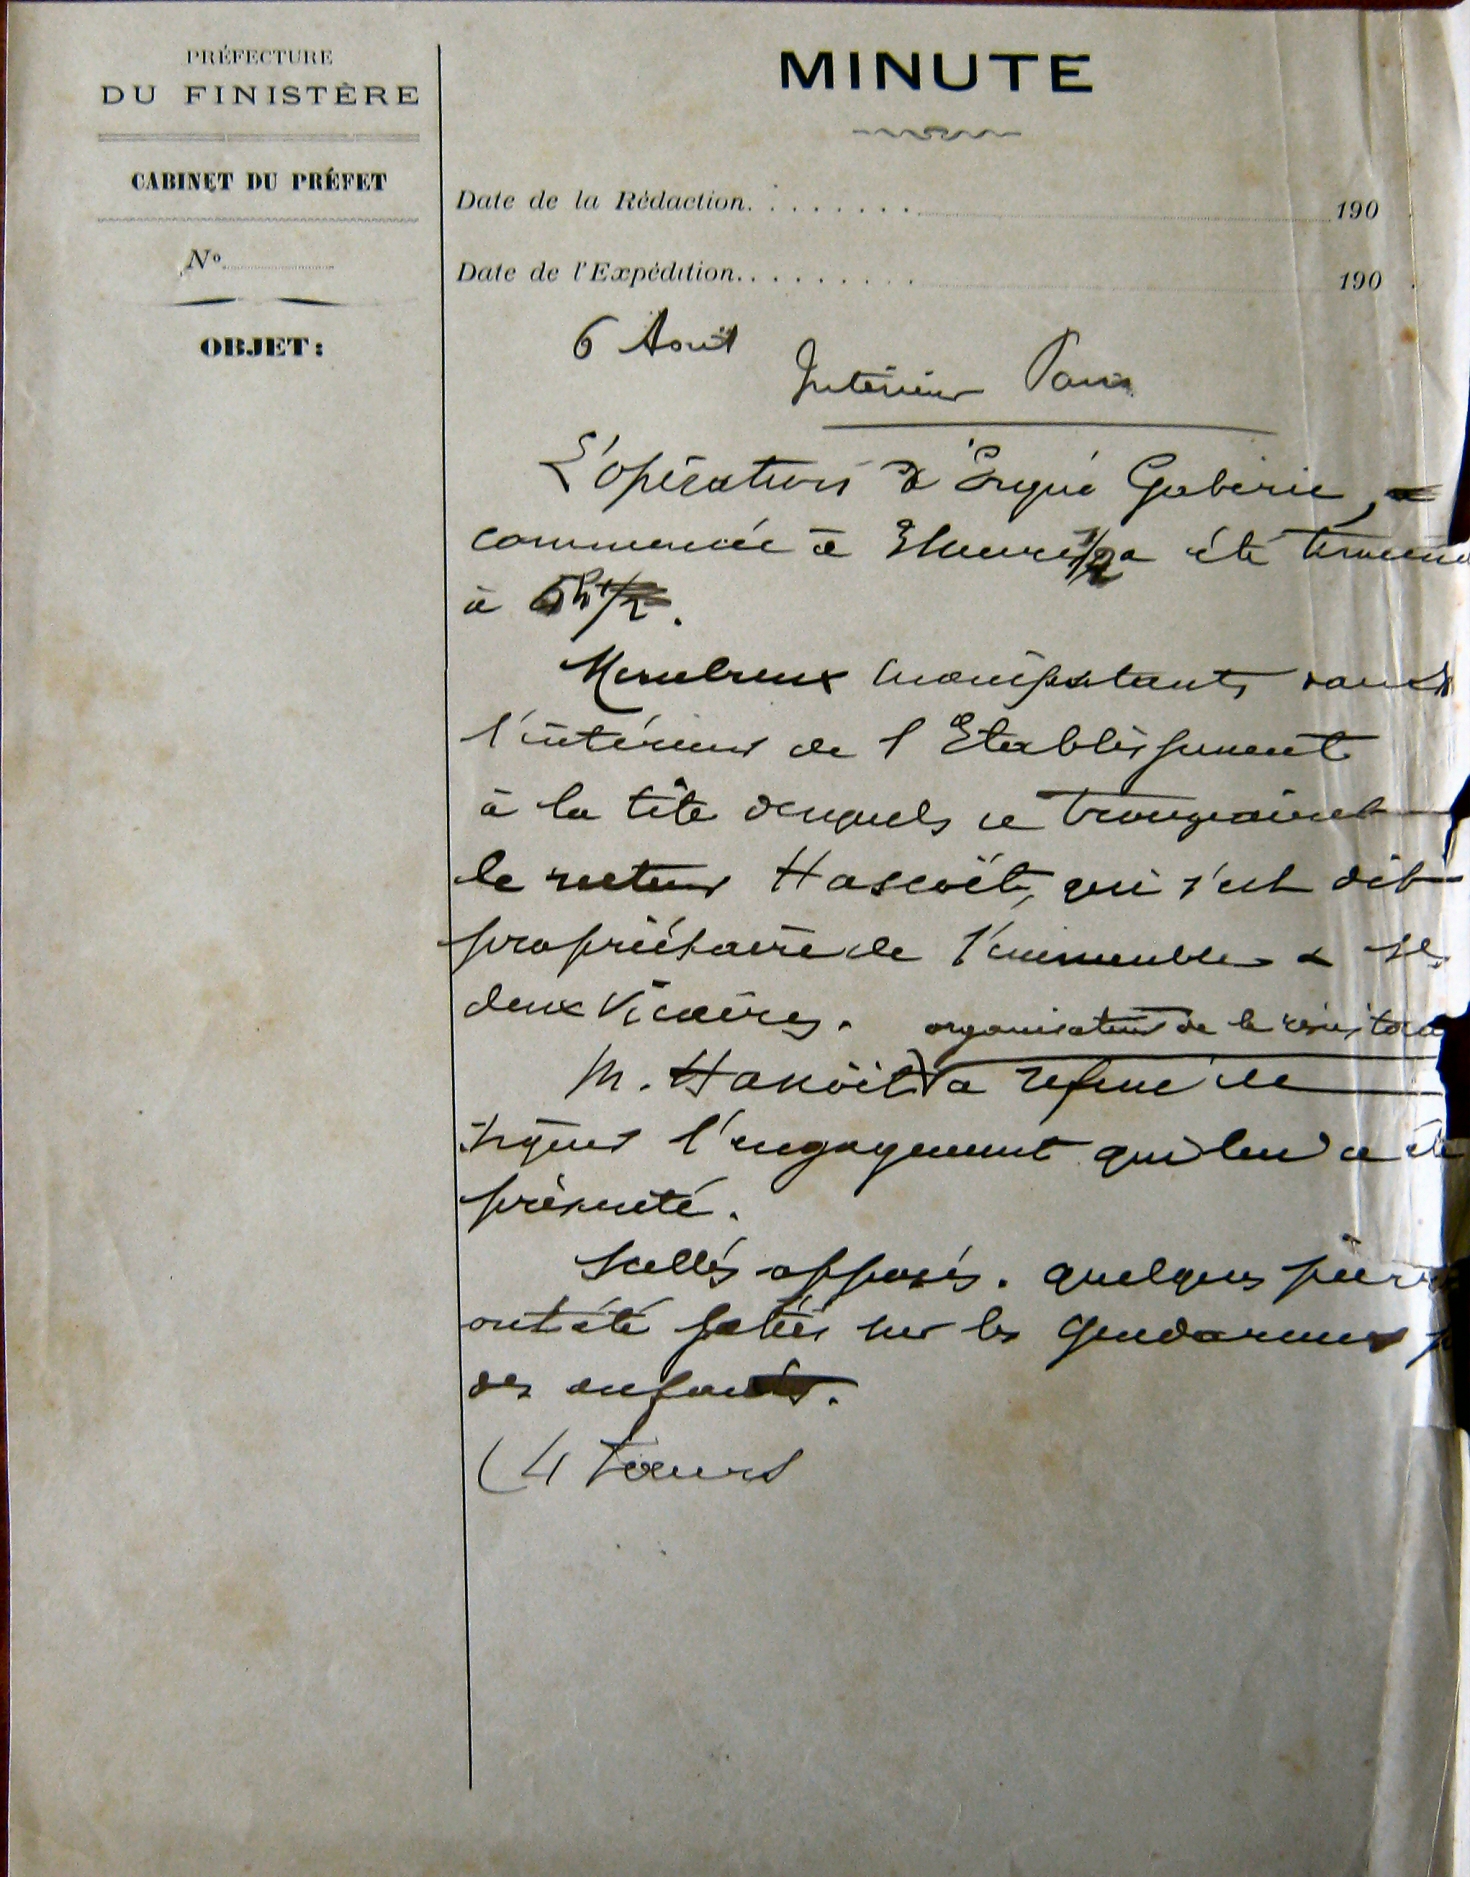 PRÉFECTURE
DU FINISTÈRE
CABINET DU PRÉFET
No
OBJET :
MINUTE
Date de la Rédaction. . . . . . . . 190
Date de l'Expédition. . . . . . . . . 190
6 Août
Intérieur Paris
L'opération d'Ergué Gabéric,
commencée à heures 1/2 a été terminé
à
Nombreux manifestants dans
l'intérieur de l'Etablissement
à la tête desquels se trouvaient
le recteur Hascoët, qui s'est dit
propriétaire de l'immeuble & ses
deux Vicaires.
organisateur de la résistance
M. Hascoët a refusé de
signer l'engagement qui lui a été
présenté.
Scellés apposés. quelques pierres
ont été jetées sur les gendarmes p
des enfants.
(4 soeurs